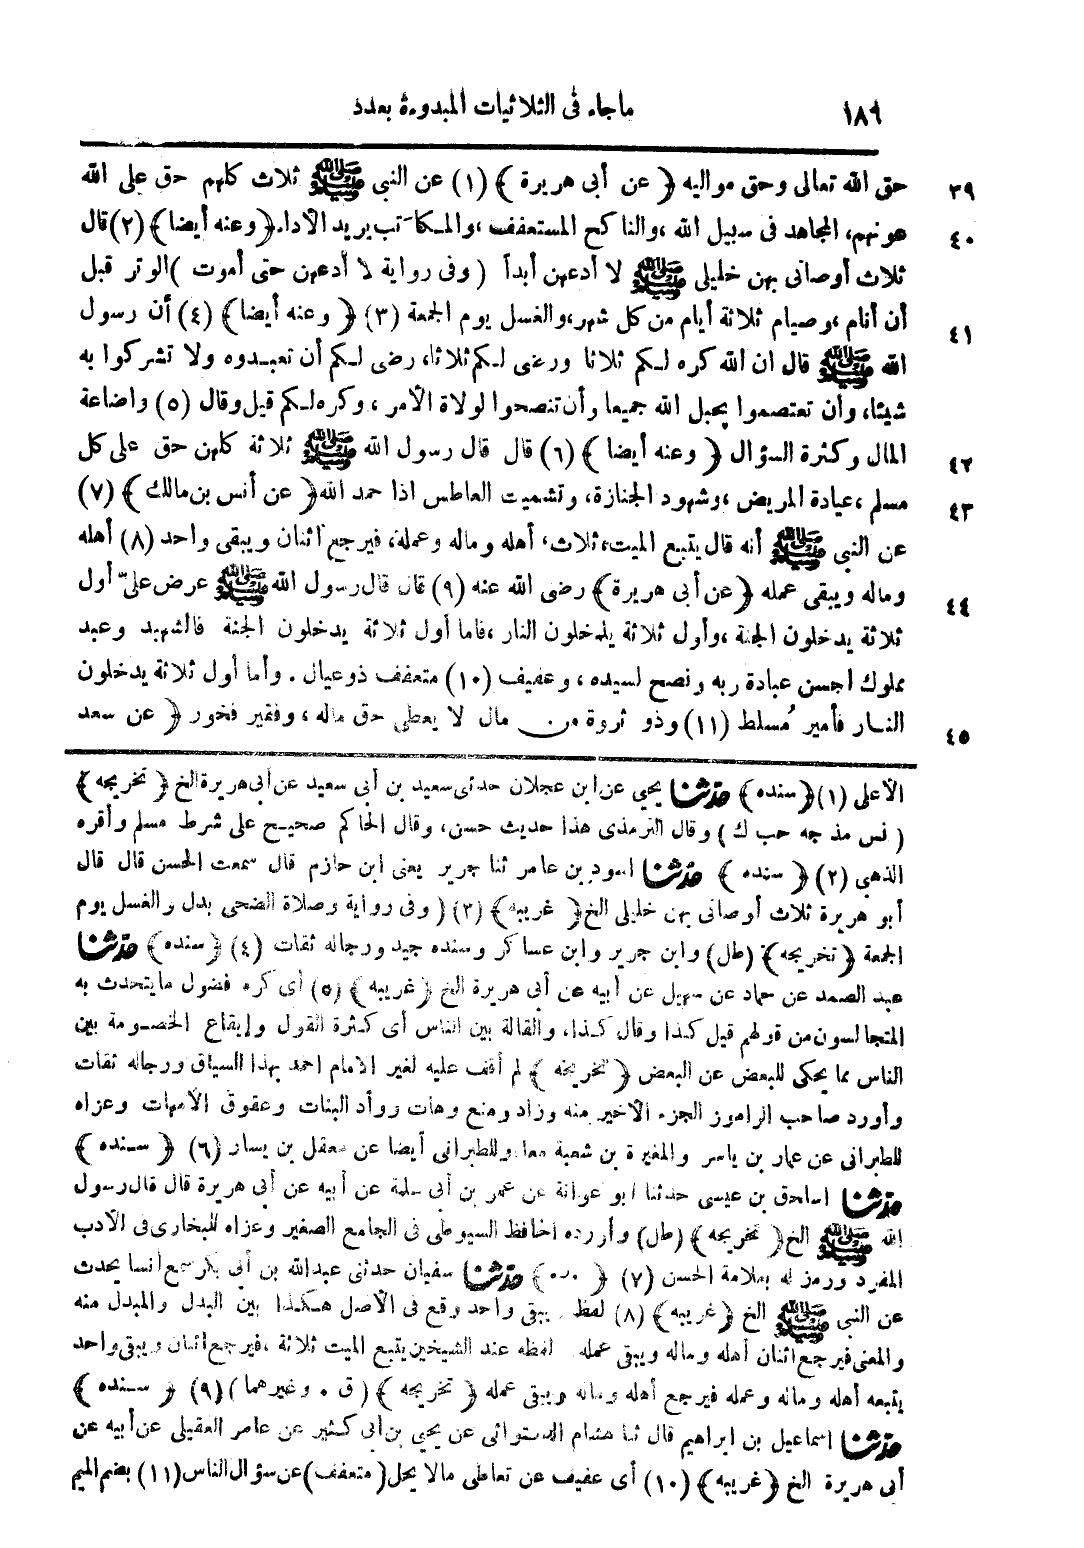 ١٨٩ ماجاء فى الثلاثيات المبدوءة بعدد
٣٩ حق الله تعالى وحق مواليه ﴿ عن أبى هريرة ﴾ (١) عن النبى ﷺ ثلاث كلهم حق على الله
٤٠ عونهم، المجاهد فى سبيل الله ،والناكح المستعفف ،والمكاتب يريد الأداء ﴿ وعنه أيضا﴾ (٢)قال
ثلاث أوصانى بهن خليلى ﷺ لا أدعهن أبدأ ( وفى رواية لا أدعهن حتى أموت )الوتر قبل
٤١ أن أنام ،وصيام ثلاثة أيام من كل شهر،والغسل يوم الجمعة (٣) ﴿ وعنه أيضا﴾ (٤) أن رسول
الله ﷺ قال ان الله كره لكم ثلاثا ورضى لكم ثلاثا، رضى لكم أن تعبدوه ولا تشركوا به
شيئا، وأن تعتصموا بحبل الله جميعا وأن تنصحوا لولاة الأمر ، وكره لكم قيل وقال (٥) واضاعة
٤٢ المال وكثرة السؤال ﴿ وعنه أيضا ﴾ (٦) قال قال رسول الله ﷺ ثلاثة كلهن حق على كل
٤٣ مسلم ،عيادة المريض ،وشهود الجنازة، وتشميت العاطس اذا حمد الله﴿ عن أنس بن مالك ﴾ (٧)
عن النبى ﷺ أنه قال يتبع الميت، ثلاث، أهله وماله وعمله، فيرجع اثنان ويبقى واحد (٨) أهله
٤٤ وماله ويبقى عمله ﴿عن أبى هريرة﴾ رضى الله عنه (٩) قال قال رسول الله ﷺ عرض علىّ أول
ثلاثة يدخلون الجنة ،وأول ثلاثة يدخلون النار ،فاما أول ثلاثة يدخلون الجنة فالشهيد وعبد
مملوك احسن عبادة ربه ونصح لسيده ، وعفيف (١٠) متعفف ذوعيال . وأما أول ثلاثة يدخلون
٤٥ النار فأمير مُسلط (١١) وذو ثروة من مال لا يعطى حق ماله ، وفقير فخور ﴿ عن سعد
الأعلى (١) ﴿سنده﴾ حدثنا يحيى عن ابن عجلان حدثى سعيد بن أبى سعيد عن أبى هريرة الخ ﴿ تخريجه ﴾
( نس مذ جه حب ك ) وقال الترمذى هذا حديث حسن، وقال الحاكم صحيح على شرط مسلم وأقره
الذهبى (٢) ﴿ سنده ﴾ حدثنا اسود بن عامر ثنا جرير يعنى ابن حازم قال سمعت الحسن قال قال
أبو هريرة ثلاث أوصانى بهن خليلى الخ﴿ غريبه﴾ (٣) ( وفى رواية وصلاة الضحى بدل والغسل يوم
الجمعة ﴿تخريجه﴾ (طل) وابن جرير وابن عساكر وسنده جيد ورجاله ثقات (٤) ﴿سنده﴾ حدثنا
عبد الصمد عن حماد عن سهيل عن أبيه عن أبى هريرة الخ ﴿غريبه﴾ (٥) أى كره فضول مايتحدث به
المتجالسون من قولهم قيل كذا وقال كذا، والقالة بين الناس أى كثرة القول وإيقاع الخصومة بين
الناس بما يحكى للبعض عن البعض ﴿ تخريجه ﴾ لم أقف عليه لغير الامام احمد بهذا السياق ورجاله ثقات
وأورد صاحب الراموز الجزء الأخير منه وزاد ومنع وهات ووأد البنات وعقوق الأمهات وعزاه
للطبرانى عن عمار بن ياسر والمغيرة بن شعبة معا وللطبرانى أيضا عن معقل بن يسار (٦) ﴿ سنده ﴾
حدثنا اسحق بن عيسى حدثنا ابو عوانة عن عمر بن أبى سلمة عن أبيه عن أبى هريرة قال قال رسول
الله ﷺ الخ﴿ تخريجه ﴾ (طل) وأورده الحافظ السيوطى فى الجامع الصغير وعزاه للبخارى فى الأدب
المفرد ورمز له بعلامة الحسن (٧) ﴿ سنده ﴾ حدثنا سفيان حدثنى عبدالله بن أبى بكر سمع أنسا يحدث
عن النبى ﷺ الخ ﴿غريبه﴾ (٨) لفظ يبقى واحد وقع فى الأصل هكذا بين البدل والمبدل منه
والمعنى فيرجع اثنان أهله وماله ويبقى عمله لفظه عند الشيخين يتبع الميت ثلاثة ،فيرجع اثنان ويبقى واحد
يتبعه أهله وماله وعمله فيرجع أهله وماله ويبقى عمله ﴿ تخريجه ﴾ ( ق . وغيرهما ) (٩) ﴿ سنده ﴾
حدثنا اسماعيل بن ابراهيم قال ثنا هشام الدستوائى عن يحيى بن أبى كثير عن عامر العقيلى عن أبيه عن
أبى هريرة الخ ﴿غريبه﴾ (١٠) أى عفيف عن تعاطى مالا يحل( متعفف)عن سؤال الناس (١١) بضم الميم